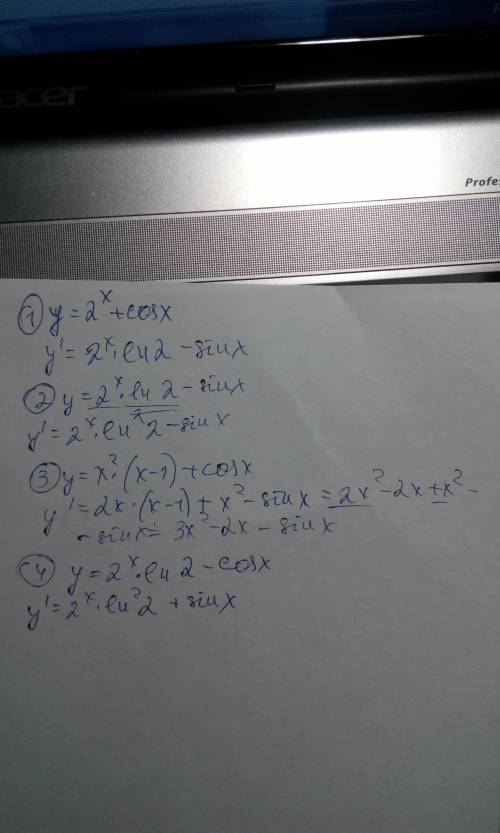 acer
Profes
① y = 2ˣ + cosx
y' = 2ˣ · ln2 - sinx
② y = 2ˣ · ln 2 - sinx
y' = 2ˣ · ln² 2 - sinx
③ y = x² · (x-1) + cosx
y' = 2x · (x-1) + x² - sinx = 2x² - 2x + x² -
- sinx = 3x² - 2x - sinx
④ y = 2ˣ · ln 2 - cosx
y' = 2ˣ · ln² 2 + sinx